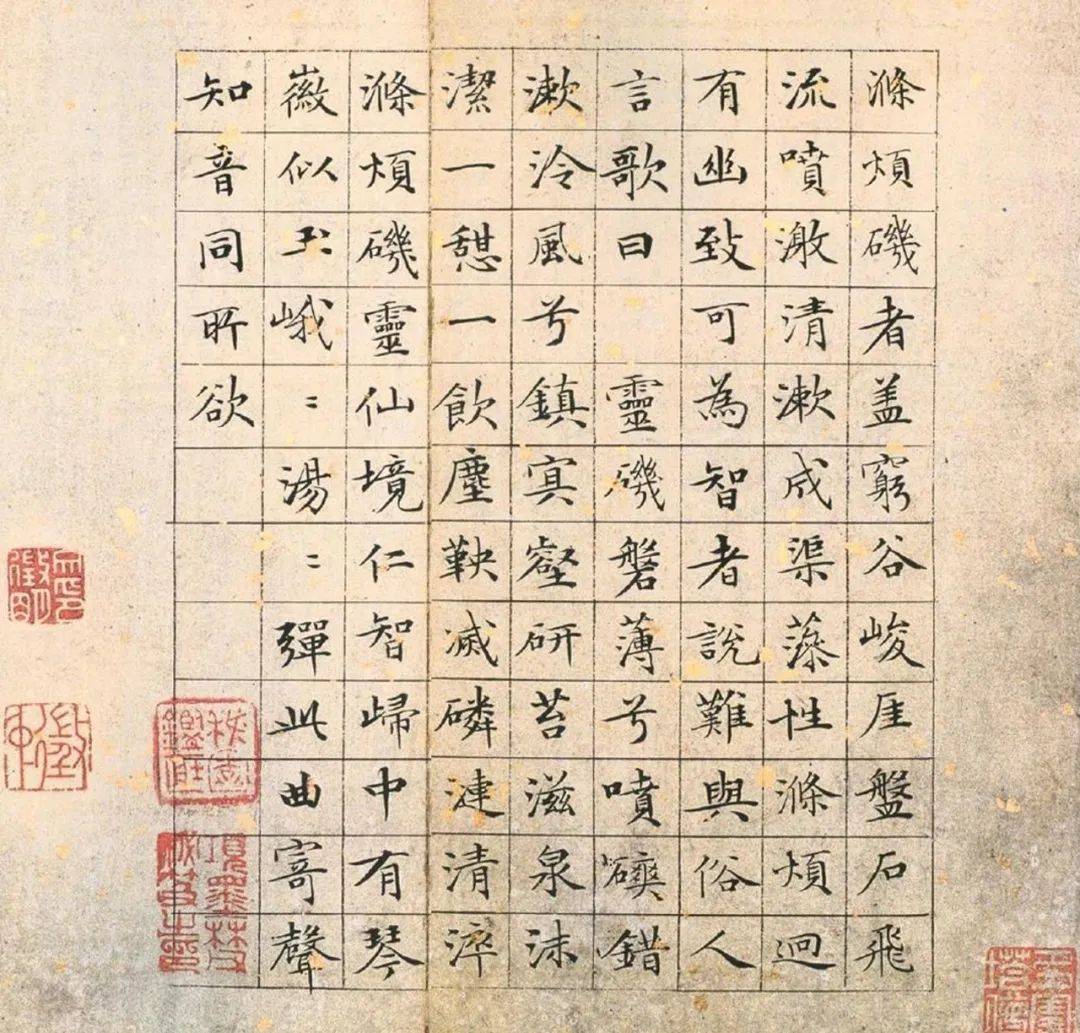 滌煩磯者盖窮谷峻厓盤石飛
流噴激清漱成渠藻性滌煩迴
有幽致可為智者說難與俗人
言歌曰　靈磯磐薄兮噴錯
漱泠風兮鎮冥壑研苔滋泉沫
潔一憇一飲塵鞅滅磷漣清淬
滌煩磯靈仙境仁智歸中有琴
徽似玉峨〻湯〻彈此曲寄聲
知音同所欲